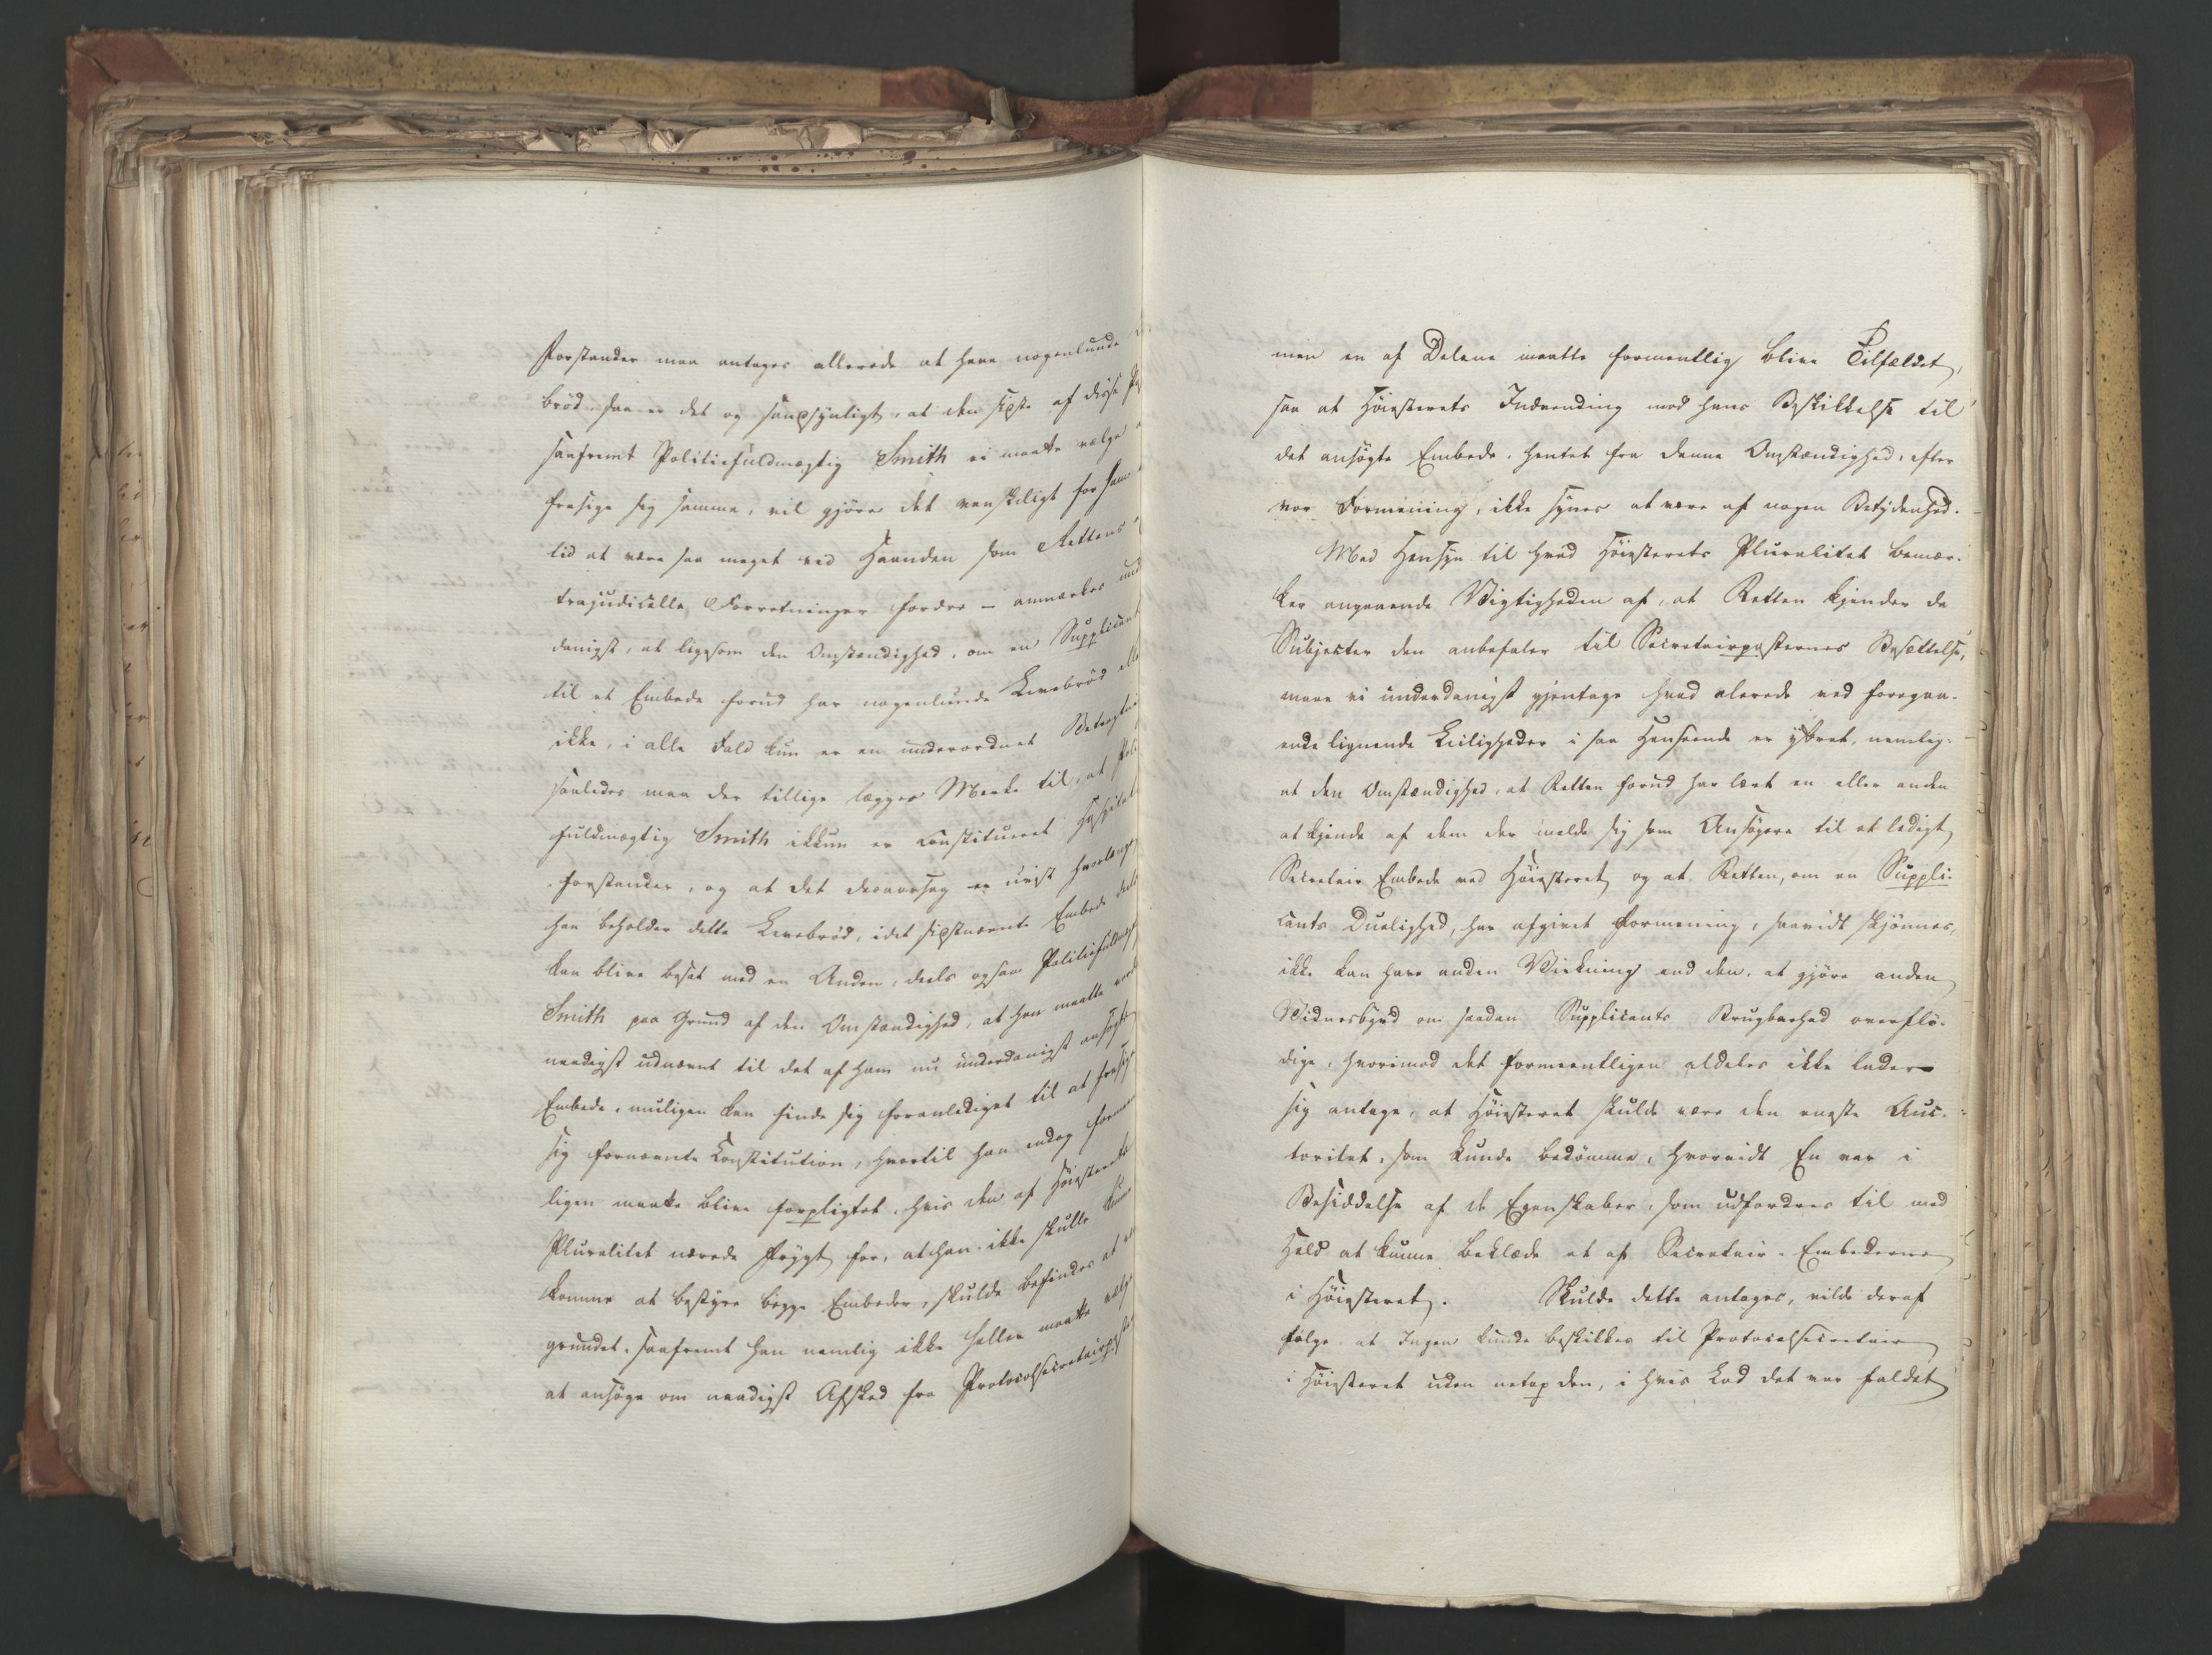 Forstander maa antages allerede at have nogenlunde
brød saa er det og sandsynligt, at den sidste af disse
saafremt Politiefuldmægtig Smith ei maatte vælge
frasige sig samme, vil gjøre det vanskeligt for ham
tid at være saa meget ved Haanden som Rettens
trajudicelle Forretninger fordre – anmærkes und
danigst, at ligesom den Omstændighed, om en Supplicant
til et Embede forud har nogenlunde Levebrød eller
ikke, i alle Fald kun er en underordnet Betragtni
saaledes maa der tillige lægges Mærke til, at Poli
fuldmægtig Smith ikkun er constitueret Hospitals
forstander, og at det desaarsag er uvist hvorlænge
han beholder dette Levebrød, idet sidstnævnte Embede deels
kan blive besat med en Anden, deels ogsaa Politiefuldmægt
Smith paa Grund af den Omstændighed, at han maatte vorde
naadigst udnævnt til det af ham nu underdanigst ansøgte
Embede, muligen kan finde sig foranlediget til at frasige
sig fornævnte Constitution, hvortil han endog formeent
ligen maatte blive forpligtet, hvis den af Høiesterets
Pluralitet nærede Frygt for, at han ikke skulle kunne
komme at bestyre begge Embeder, skulde befindes at være
grundet, saafremt han nemlig ikke heller maatte vælge
at ansøge om naadigst Afsked fra Protocolsecretairpost
men en af Delene maatte formentlig blive Tilfældet,
saa at Høiesterets Indvending mod hans Beskikkelse til
det ansøgte Embede, hentet fra denne Omstændighed, efter
vor Formening, ikke synes at være af nogen Betydenhed.
Med Hensyn til hvad Høiesterets Pluralitet bemær-
ker angaaende Vigtigheden af, at Retten kjender de
Subjecter den anbefaler til Secretairposternes Besættelse,
maae vi underdanigst gjentage hvad alerede ved foregaa-
ende lignende Leiligheder i saa Henseende er yttret, nemlig:
at den Omstændighed, at Retten forud har lært en eller anden
at kjende af dem der melde sig som Ansøgere til et ledigt
Secretair Embede ved Høiesteret og at Retten, om en Suppli-
cants Duelighed, har afgivet Formening, saavidt skjønnes,
ikke kan have anden Virkning end den, at gjøre anden
Vidnesbyrd om saadan Supplicants Brugbarhed overflø-
dige, hvorimod det formeentligen aldeles ikke lader
sig antage, at Høiesteret skulde være den eneste Auc-
toritet, som kunde bedømme, hvorvidt En var i
Besiddelse af de Egenskaber, som udfordres til med
Held at kunne beklæde et af Secretair-Embederne
i Høiesteret. Skulde dette antages, vilde deraf
følge at Ingen kunde beskikkes til Protocolsecretair
i Høiesteret uden netop den, i hvis Lod det var faldet